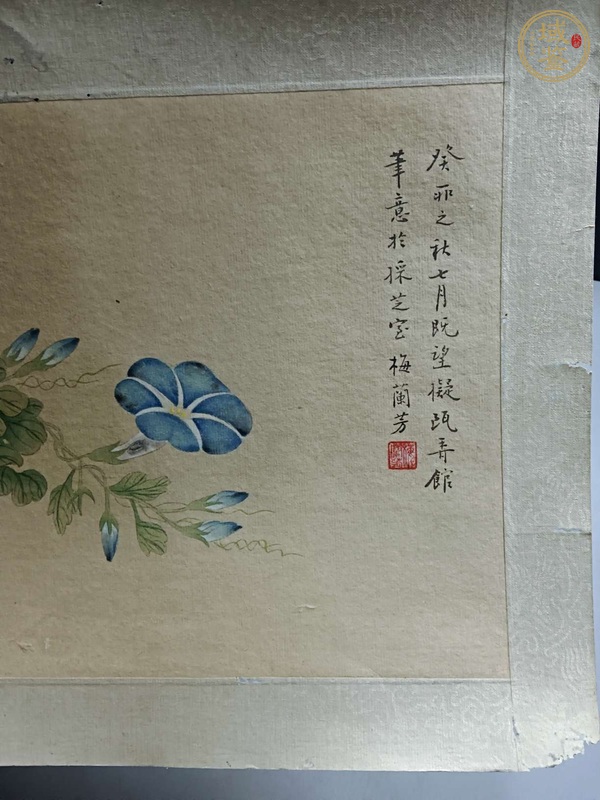 癸卯之秋七月既望擬甌香館
筆意於採芝室 梅蘭芳